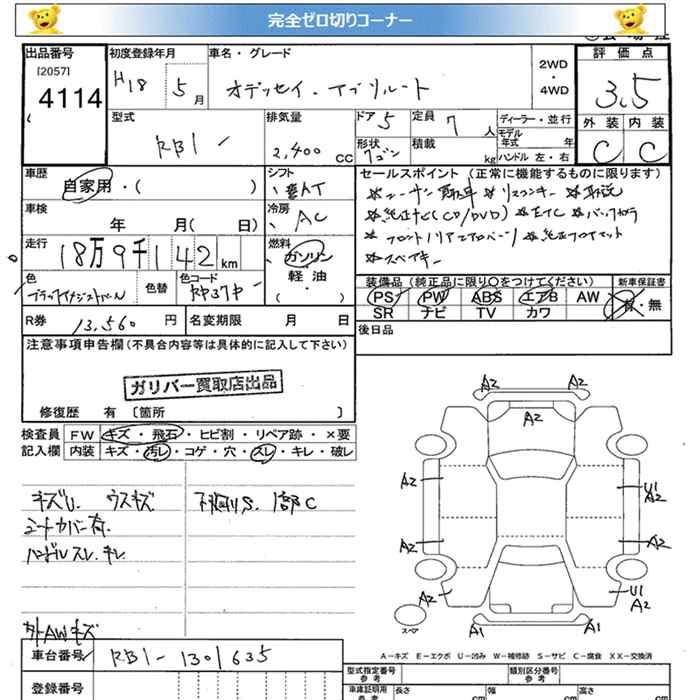 完全ゼロ切りコーナー
出品番号 初度登録年月 車名・グレード 2WD・4WD 評価点
[2057]
4114 H18 5月 オデッセイ・アブソルート 3.5
型式 排気量 ドア 5 定員 7人 ディーラー・並行 外装 内装
RB1 2,400cc 形状 ワゴン 積載 kg モデル年式 年 ハンドル 左・右 C C
車歴 シフト セールスポイント (正常に機能するものに限ります)
自家用・( ) AT
車検 冷房 ※純正ナビ(CD/DVD) ※ETC ※バックカメラ
年 月( 日) AC
走行 燃料 ※純正フロアマット
18万9千142km ガソリン ※スペアキー
色 色替 色コード 軽油 装備品 (純正品に限り○をつけてください) 新車保証書
RP37P ・( ) PS PW ABS エアB AW 有・無
SR ナビ TV カワ
R券 13,560円 名変期限 月 日 後日品
注意事項申告欄(不具合内容等は具体的に記入して下さい)
ガリバー買取店出品
修復歴 有 〔箇所 〕
検査員 FW キズ・飛石・ヒビ割・リペア跡・×要
記入欄 内装 キズ・汚レ・コゲ・穴・スレ・キレ・破レ
キズU. ウスキズ
シートカバー有.
ハンドルスレ.キレ
外AWキズ
A2 A2
A2
A2 U1 A2
A2 A2
A2 U1 A2
スペア A1 A1
A−キズ E−エクボ U−凹み W−補修跡 S−サビ C−腐食 XX−交換済
車台番号 RB1-1301635 型式指定番号 参考 類別区分番号 参考
登録番号 車庫証明用 参考 長さ cm 幅 cm 高さ cm